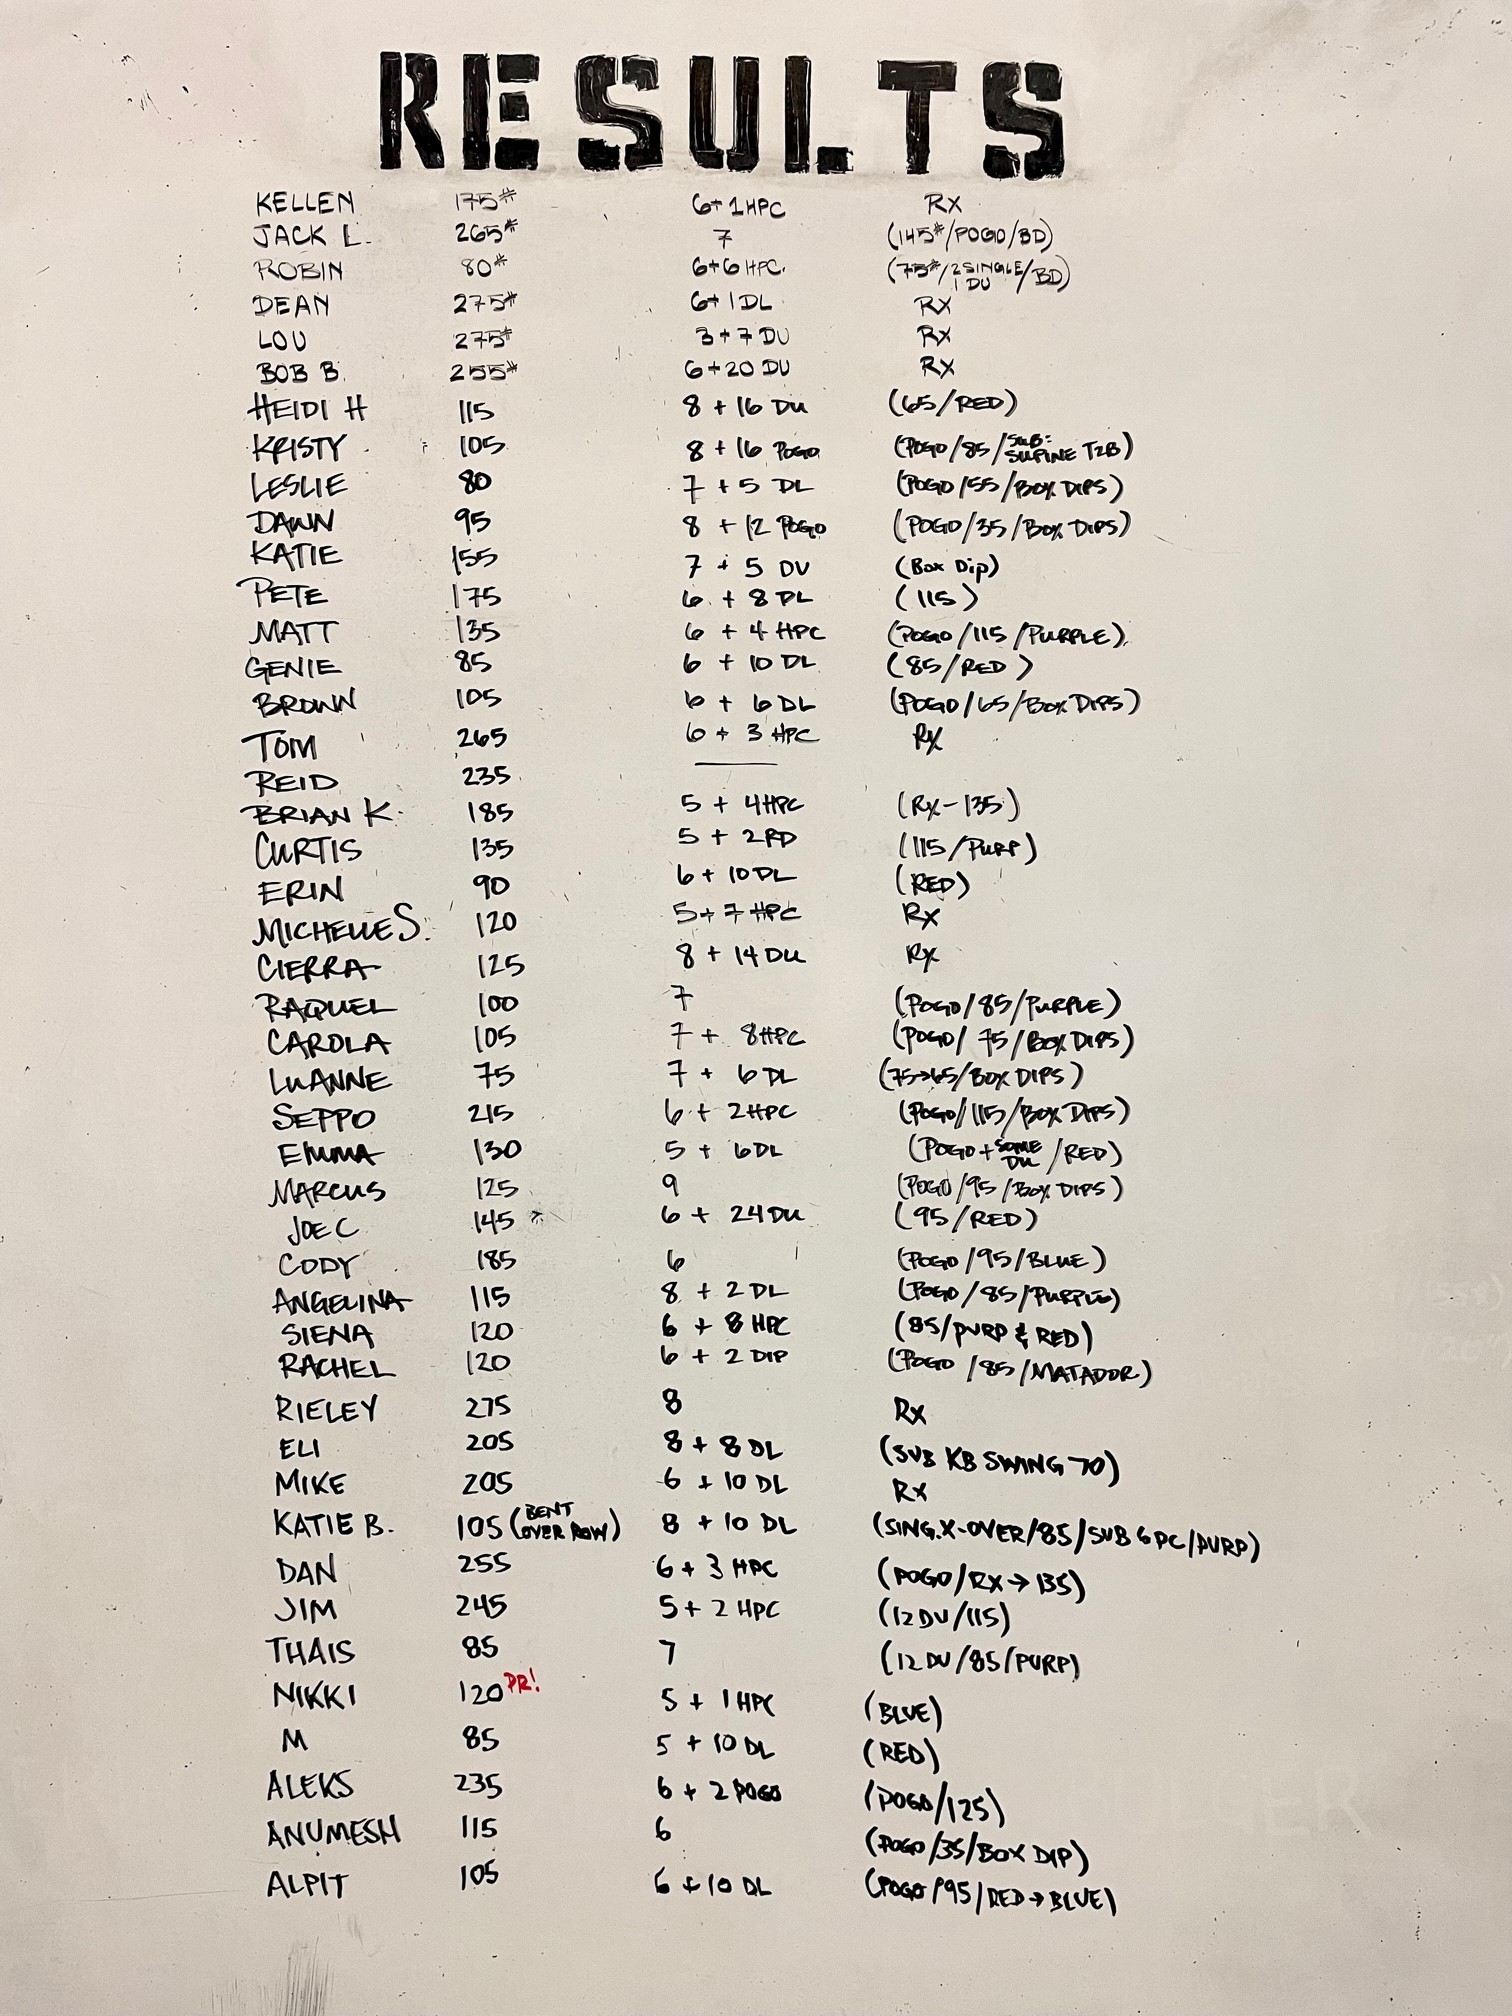 RESULTS
KELLEN 175# 6+1HPC RX
JACK L. 265# 7 (145#/POGO/BD)
ROBIN 80# 6+6 HPC. (75#/2 SINGLE 1 DU/BD)
DEAN 275# 6+1DL RX
LOU 275# 3+7 DU RX
BOB B. 255# 6+20 DU RX
HEIDI H 115 8 + 16 DU (65/RED)
KRISTY 105 8 + 16 POGO (POGO/85/SUB: SUPINE T2B)
LESLIE 80 7 + 5 DL (POGO/55/BOX DIPS)
DAWN 95 8 + 12 POGO (POGO/35/BOX DIPS)
KATIE 155 7 + 5 DU (Box Dip)
PETE 175 6 + 8 DL (115)
MATT 135 6 + 4 HPC (POGO/115/PURPLE)
GENIE 85 6 + 10 DL (85/RED)
BROWN 105 6 + 6 DL (POGO/65/BOX DIPS)
TOM 265 6 + 3 HPC RX
REID 235 —
BRIAN K. 185 5 + 4HPC (RX-135)
CURTIS 135 5 + 2RD (115/PURP)
ERIN 90 6 + 10 DL (RED)
MICHELLE S. 120 5+7 HPC RX
CIERRA 125 8 + 14 DU RX
RAQUEL 100 7 (POGO/85/PURPLE)
CAROLA 105 7 + 8HPC (POGO/75/BOX DIPS)
LUANNE 75 7 + 6 DL (75→65/BOX DIPS)
SEPPO 215 6 + 2HPC (POGO/115/BOX DIPS)
EMMA 130 5 + 6DL (POGO + SOME DU/RED)
MARCUS 125 9 (POGO/95/BOX DIPS)
JOE C 145 6 + 24 DU (95/RED)
CODY 185 6 (POGO/95/BLUE)
ANGELINA 115 8 + 2 DL (POGO/85/PURPLE)
SIENA 120 6 + 8 HPC (85/PURP & RED)
RACHEL 120 6 + 2 DIP (POGO/85/MATADOR)
RIELEY 275 8 RX
ELI 205 8 + 8 DL (SUB KB SWING 70)
MIKE 205 6 + 10 DL RX
KATIE B. 105 (BENT OVER ROW) 8 + 10 DL (SING.X-OVER/85/SUB 6 PC/PURP)
DAN 255 6 + 3 HPC (POGO/RX→135)
JIM 245 5 + 2 HPC (12 DU/115)
THAIS 85 7 (12 DU/85/PURP)
NIKKI 120 PR! 5 + 1 HPC (BLUE)
M 85 5 + 10 DL (RED)
ALEKS 235 6 + 2 POGO (POGO/125)
ANUMESH 115 6 (POGO/35/BOX DIP)
ALPIT 105 6 + 10 DL (POGO/95/RED→BLUE)